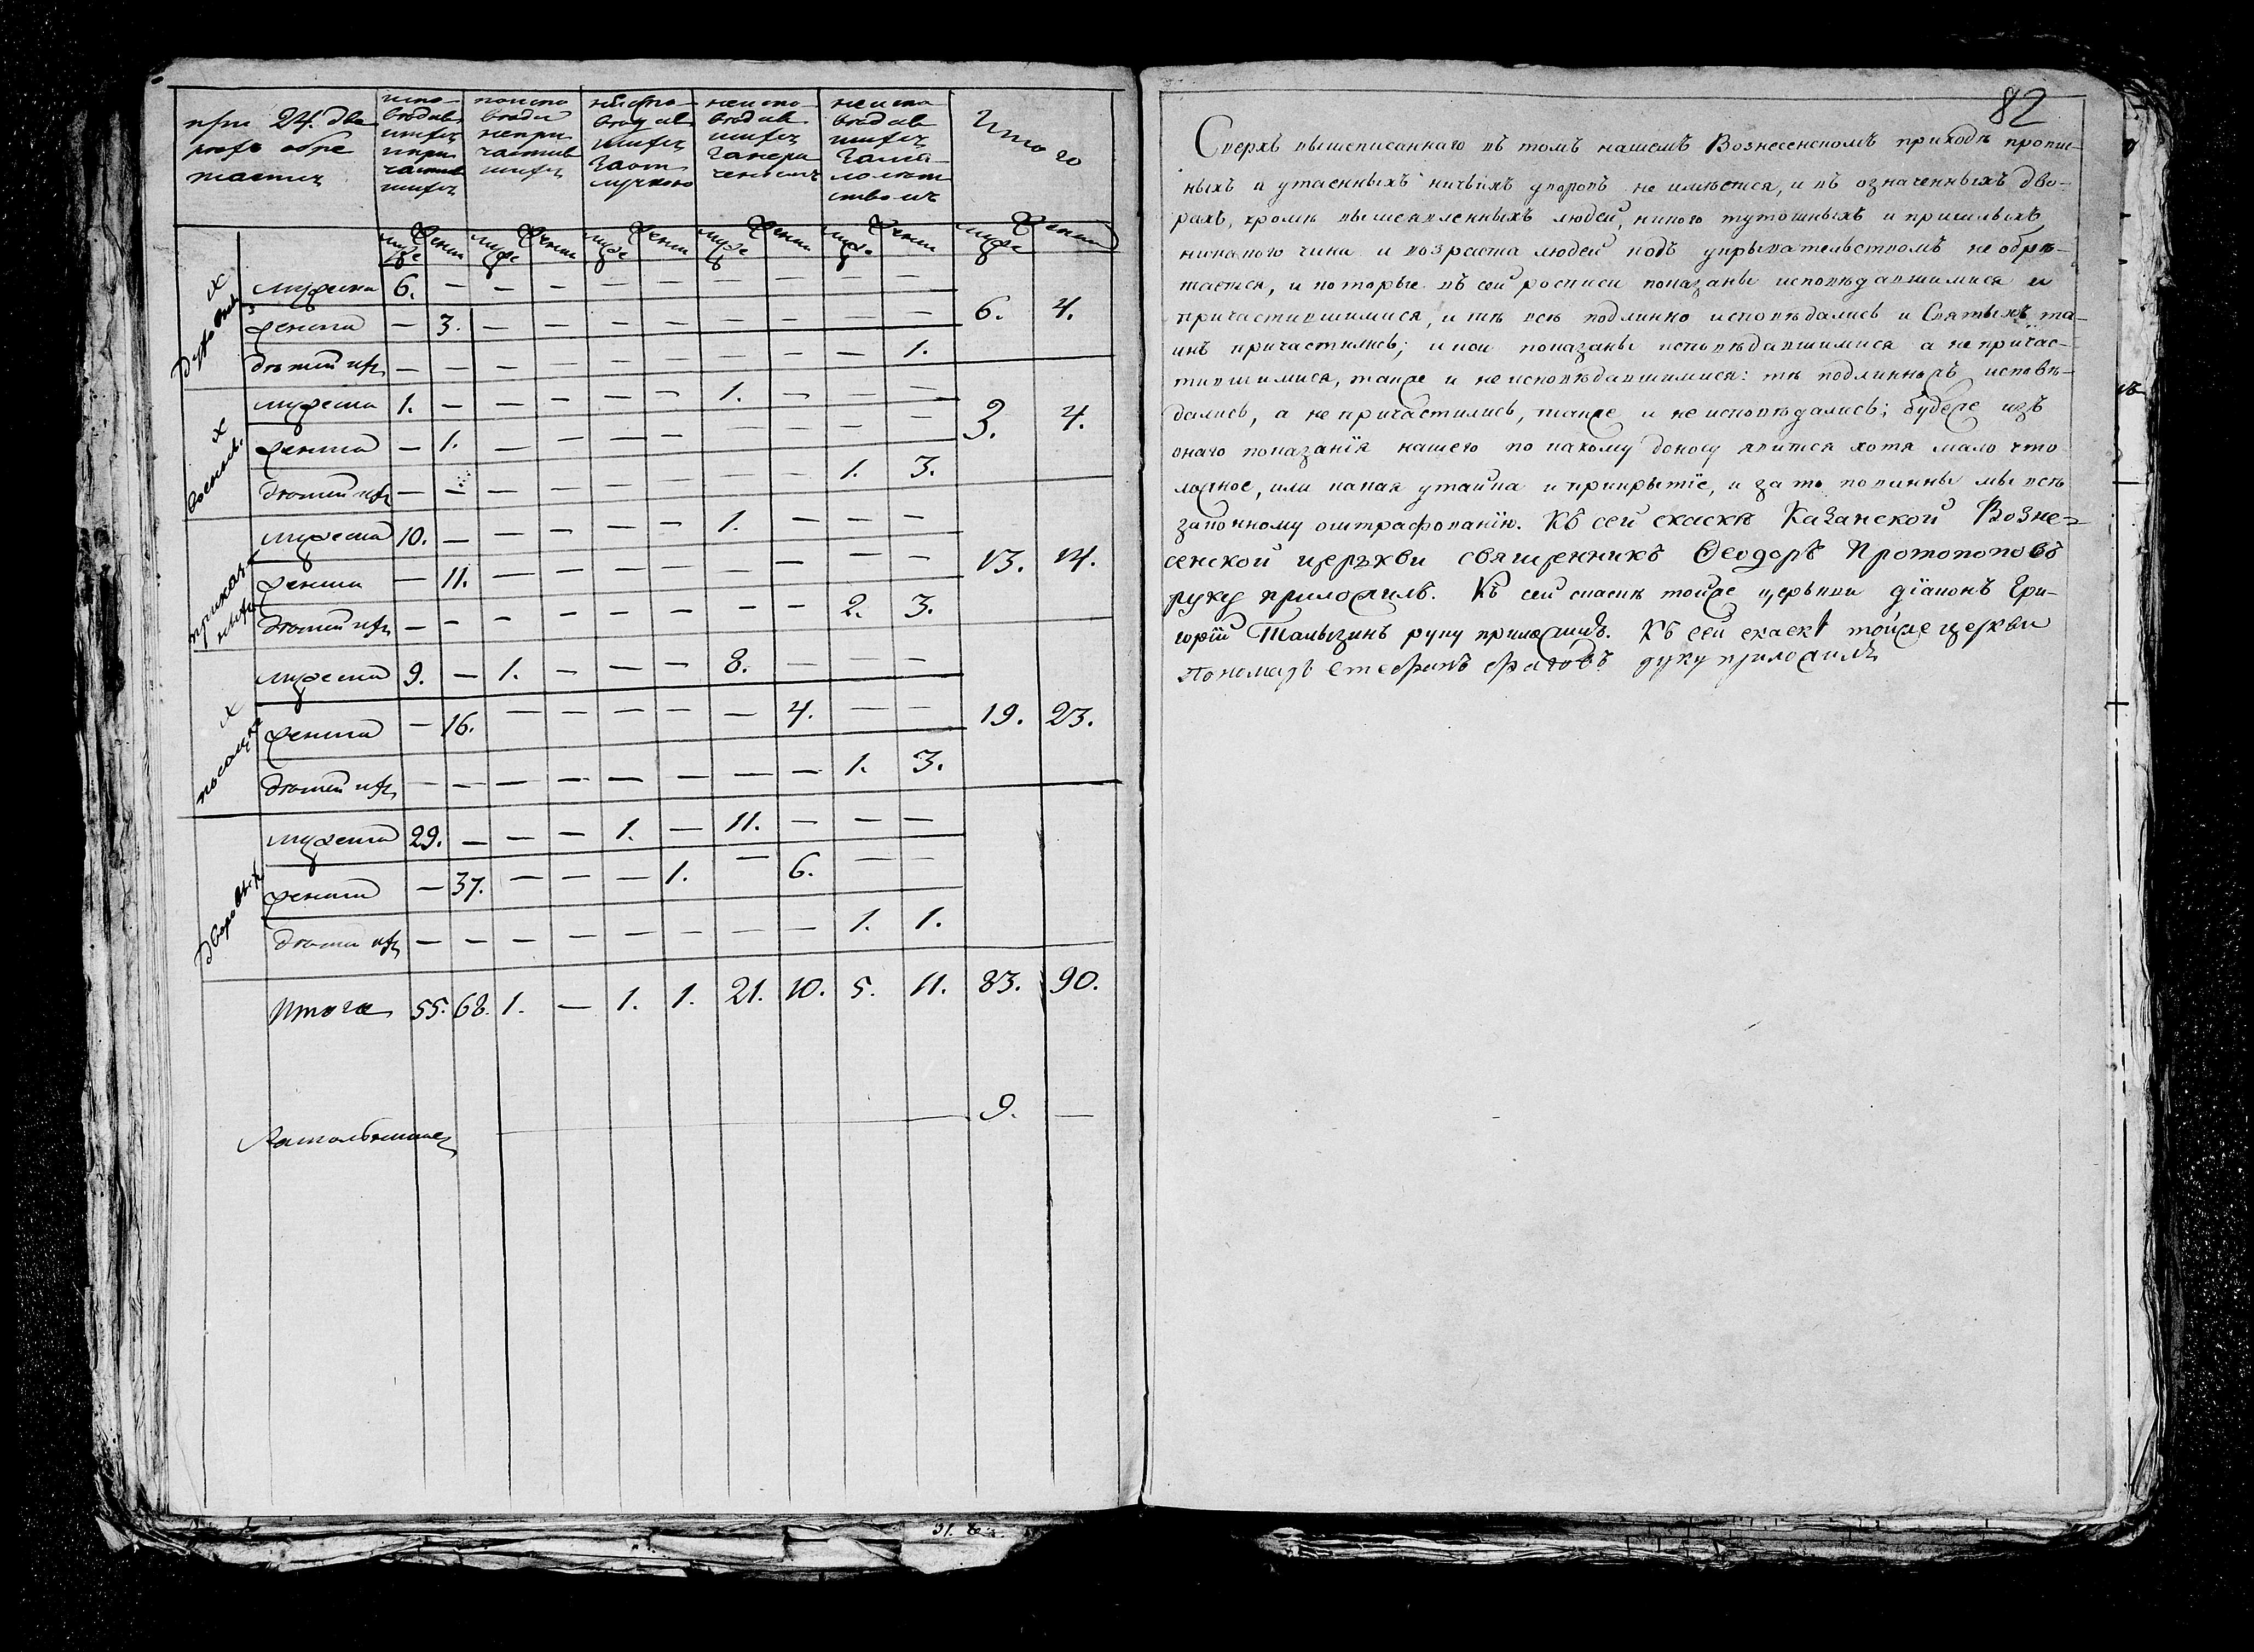 при 24. дво
рахъ обре
тается
испо-
ведав
шихся
и при
частив
шихся
поиспо
ведав
непри
частив
шихся
неиспо-
ведав
шихся
заот
лучкою
неиспо-
ведав
шихся
занера
чениемъ
неиспо
ведав
шихся
зама-
лолет
ствомъ
Итого
муже женск муже женск муже женск муже женск муже женск муже женск
Духовных
мужеска 6. — — — — — — — — —
женска — 3. — — — — — — — — 6. 4.
детей их — — — — — — — — — 1.
военных
мужеска 1. — — — — — 1. — — —
женска — 1. — — — — — — — — 3. 4.
детей их — — — — — — — — 1. 3.
приказных
мужеска 10. — — — — — 1. — — —
женска — 11. — — — — — — — — 13. 14.
детей их — — — — — — — — 2. 3.
посацких
мужеска 9. — 1. — — — 8. — — —
женска — 16. — — — — — 4. — — 19. 23.
детей их — — — — — — — — 1. 3.
Дворовых
мужеска 29. — — — 1. — 11. — — —
женска — 37. — — — 1. — 6. — —
детей их — — — — — — — — 1. 1.
Итого 55. 68. 1. — 1. 1. 21. 10. 5. 11. 83. 90.
9. —
82
Сверхъ вышеписаннаго въ томъ нашемъ Вознесенскомъ приходѣ пропис-
ныхъ и утаенныхъ ничьихъ дворовъ не имѣется, и въ означенныхъ дво-
рахъ, кромѣ вышеявленныхъ людей, никого тутошныхъ и пришлыхъ
никакого чина и возраста людей подъ укрывательствомъ не обрѣ-
тается, и которые въ сей росписи показаны исповѣдавшимися и
причастившимися, и тѣ всѣ подлинно исповѣдались и Святыхъ та-
инъ причастились; и кои показаны исповѣдавшимися а не причас-
тившимися, также и не исповѣдавшимися: тѣ подлинножъ исповѣ-
дались, а не причастились, также и не исповѣдались; будеже изъ
онаго показанїя нашего по какому доносу явится хотя мало что
ложное, или какая утайка и прикрытїе, и за то повинны мы всѣ
законному оштрафованїю. Къ сей скаскѣ Казанской Возне-
сенской церькви священникъ Ѳеодоръ Протопоповъ
руку приложилъ. Къ сей скаскѣ тойже церькви дїаконъ Гри-
горїй Талызинъ руку приложилъ. Къ сей скаскѣ тойже церкви
пономарь Стефанъ руку приложилъ